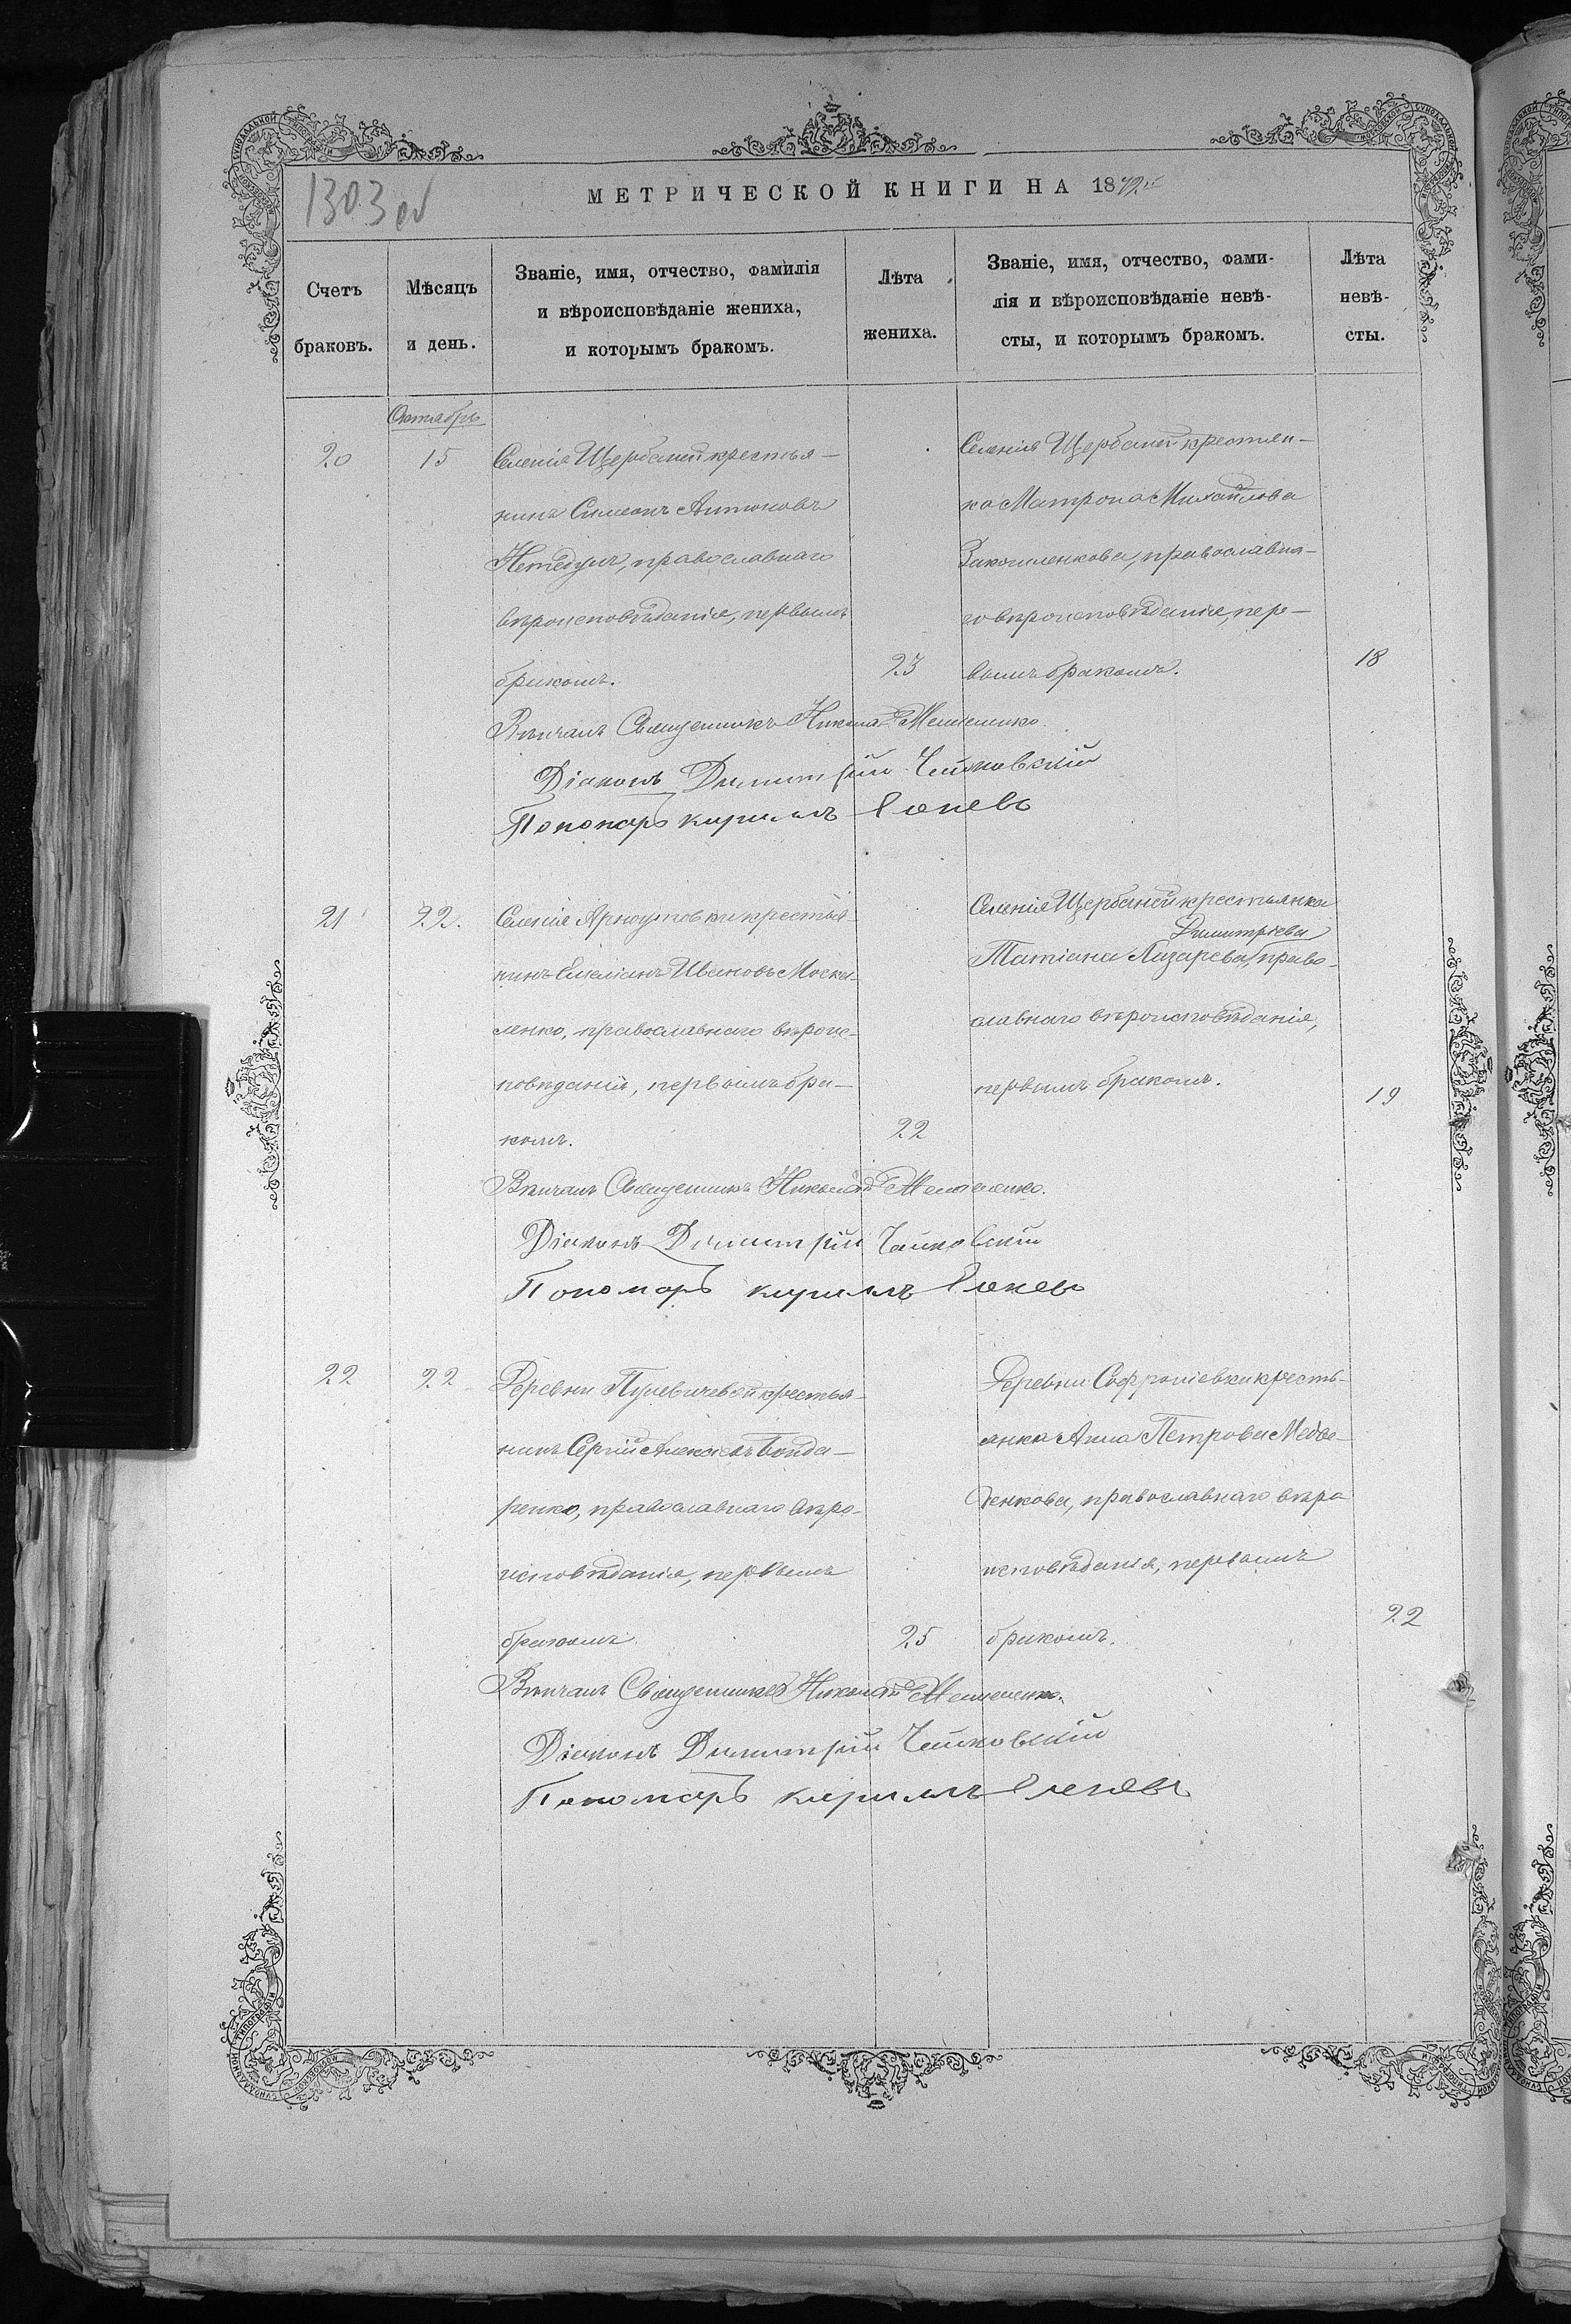 1303 об
МЕТРИЧЕСКОЙ КНИГИ НА 1872
Счетъ браковъ.
Мѣсяцъ и день.
Званіе, имя, отчество, фамилія
и вѣроисповѣданіе жениха,
и которымъ бракомъ.
Лѣта жениха.
Званіе, имя, отчество, фами-
лія и вѣроисповѣданіе невѣ-
сты, и которымъ бракомъ.
Лѣта невѣ-
сты.
Октябрь
20
15
Селенія Щербаней крестья-
нинъ Симеонъ Антоновъ
православнаго
вѣроисповѣданія, первымъ
бракомъ.
23
Селенія Щербаней крестьян-
ка Матрона Михайлова
православна-
го вѣроисповѣданія, пер-
вымъ бракомъ.
18
Вѣнчалъ Священникъ Николай
Діаконъ Димитрій Чайковскій
Пономарь Кирилъ
21
22.
Селенія Арнаутовки крестья-
нинъ Емеліанъ Ивановъ Моска-
ленко, православнаго вѣроис-
повѣданія, первымъ бра-
комъ.
22
Селенія Щербаней крестьянка
Димитріева
Татіана Лазарева, право-
славнаго вѣроисповѣданія,
первымъ бракомъ.
19
Вѣнчалъ Священникъ Николай
Діаконъ Димитрій Чайковскій
Пономарь Кирилъ
22
22
Деревни крестья-
нинъ Сергій Алексѣевъ Бонда-
ренко, православнаго вѣро-
исповѣданія, первымъ
бракомъ
25
Деревни Софроніевки кресть-
янка Анна Петрова Медве-
денкова, православнаго вѣро
исповѣданія, первымъ
бракомъ.
22
Вѣнчалъ Священникъ Николай
Діаконъ Димитрій Чайковскій
Пономарь Кирилъ